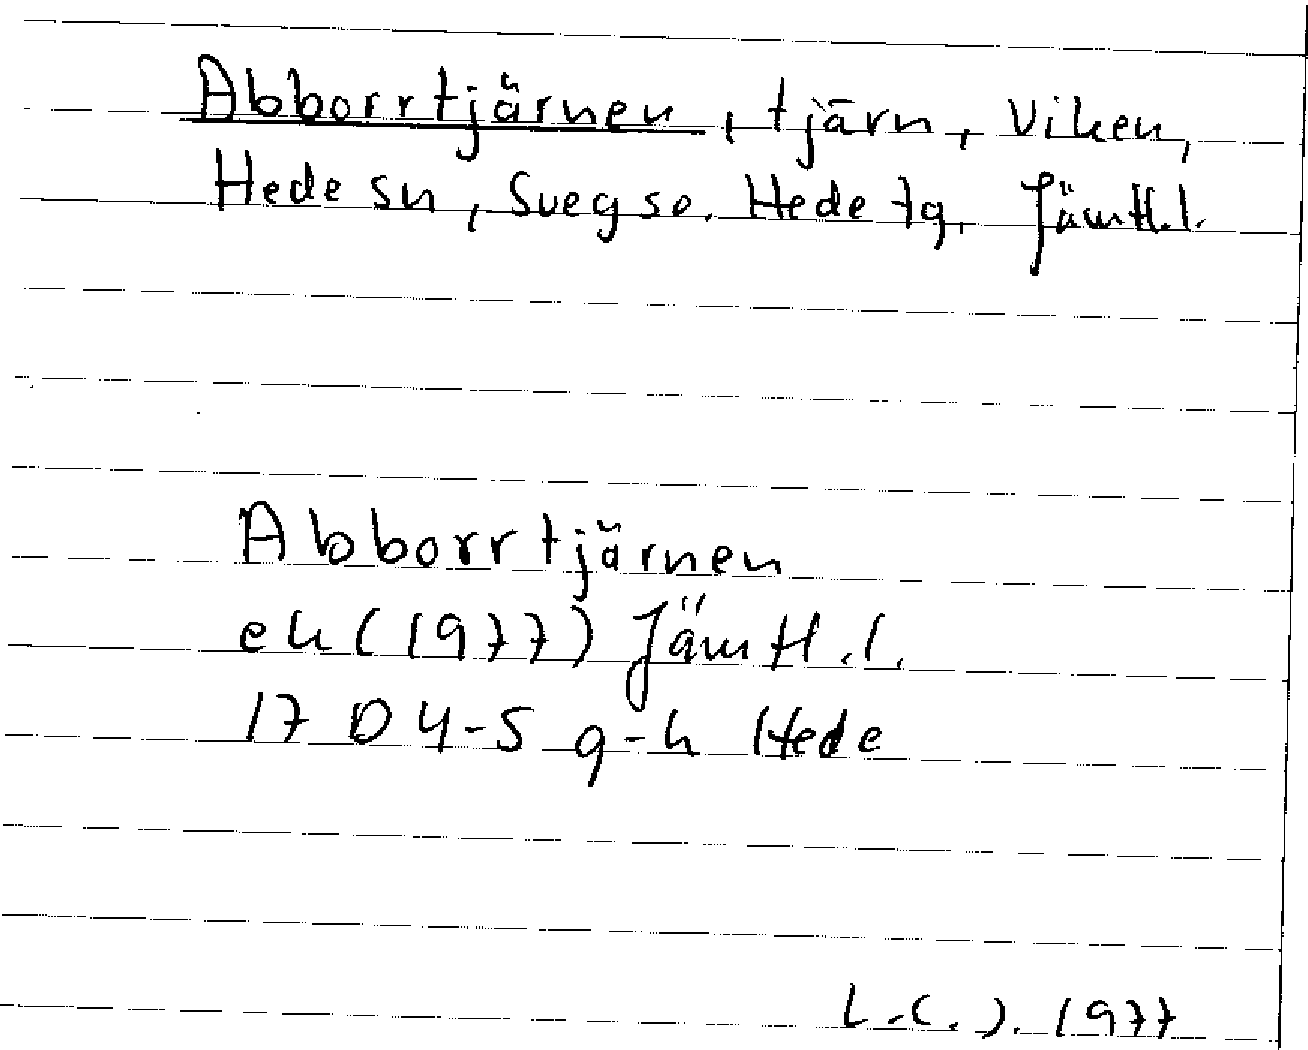 Abborrtjärnen, tjärn, Viken,
Hede sn, Sveg so. Hede tg, Jämtl.l.
Abborrtjärnen
ek (1977) Jämtl.l.
17 D 4-5 g-h Hede
L.C.J. 1977